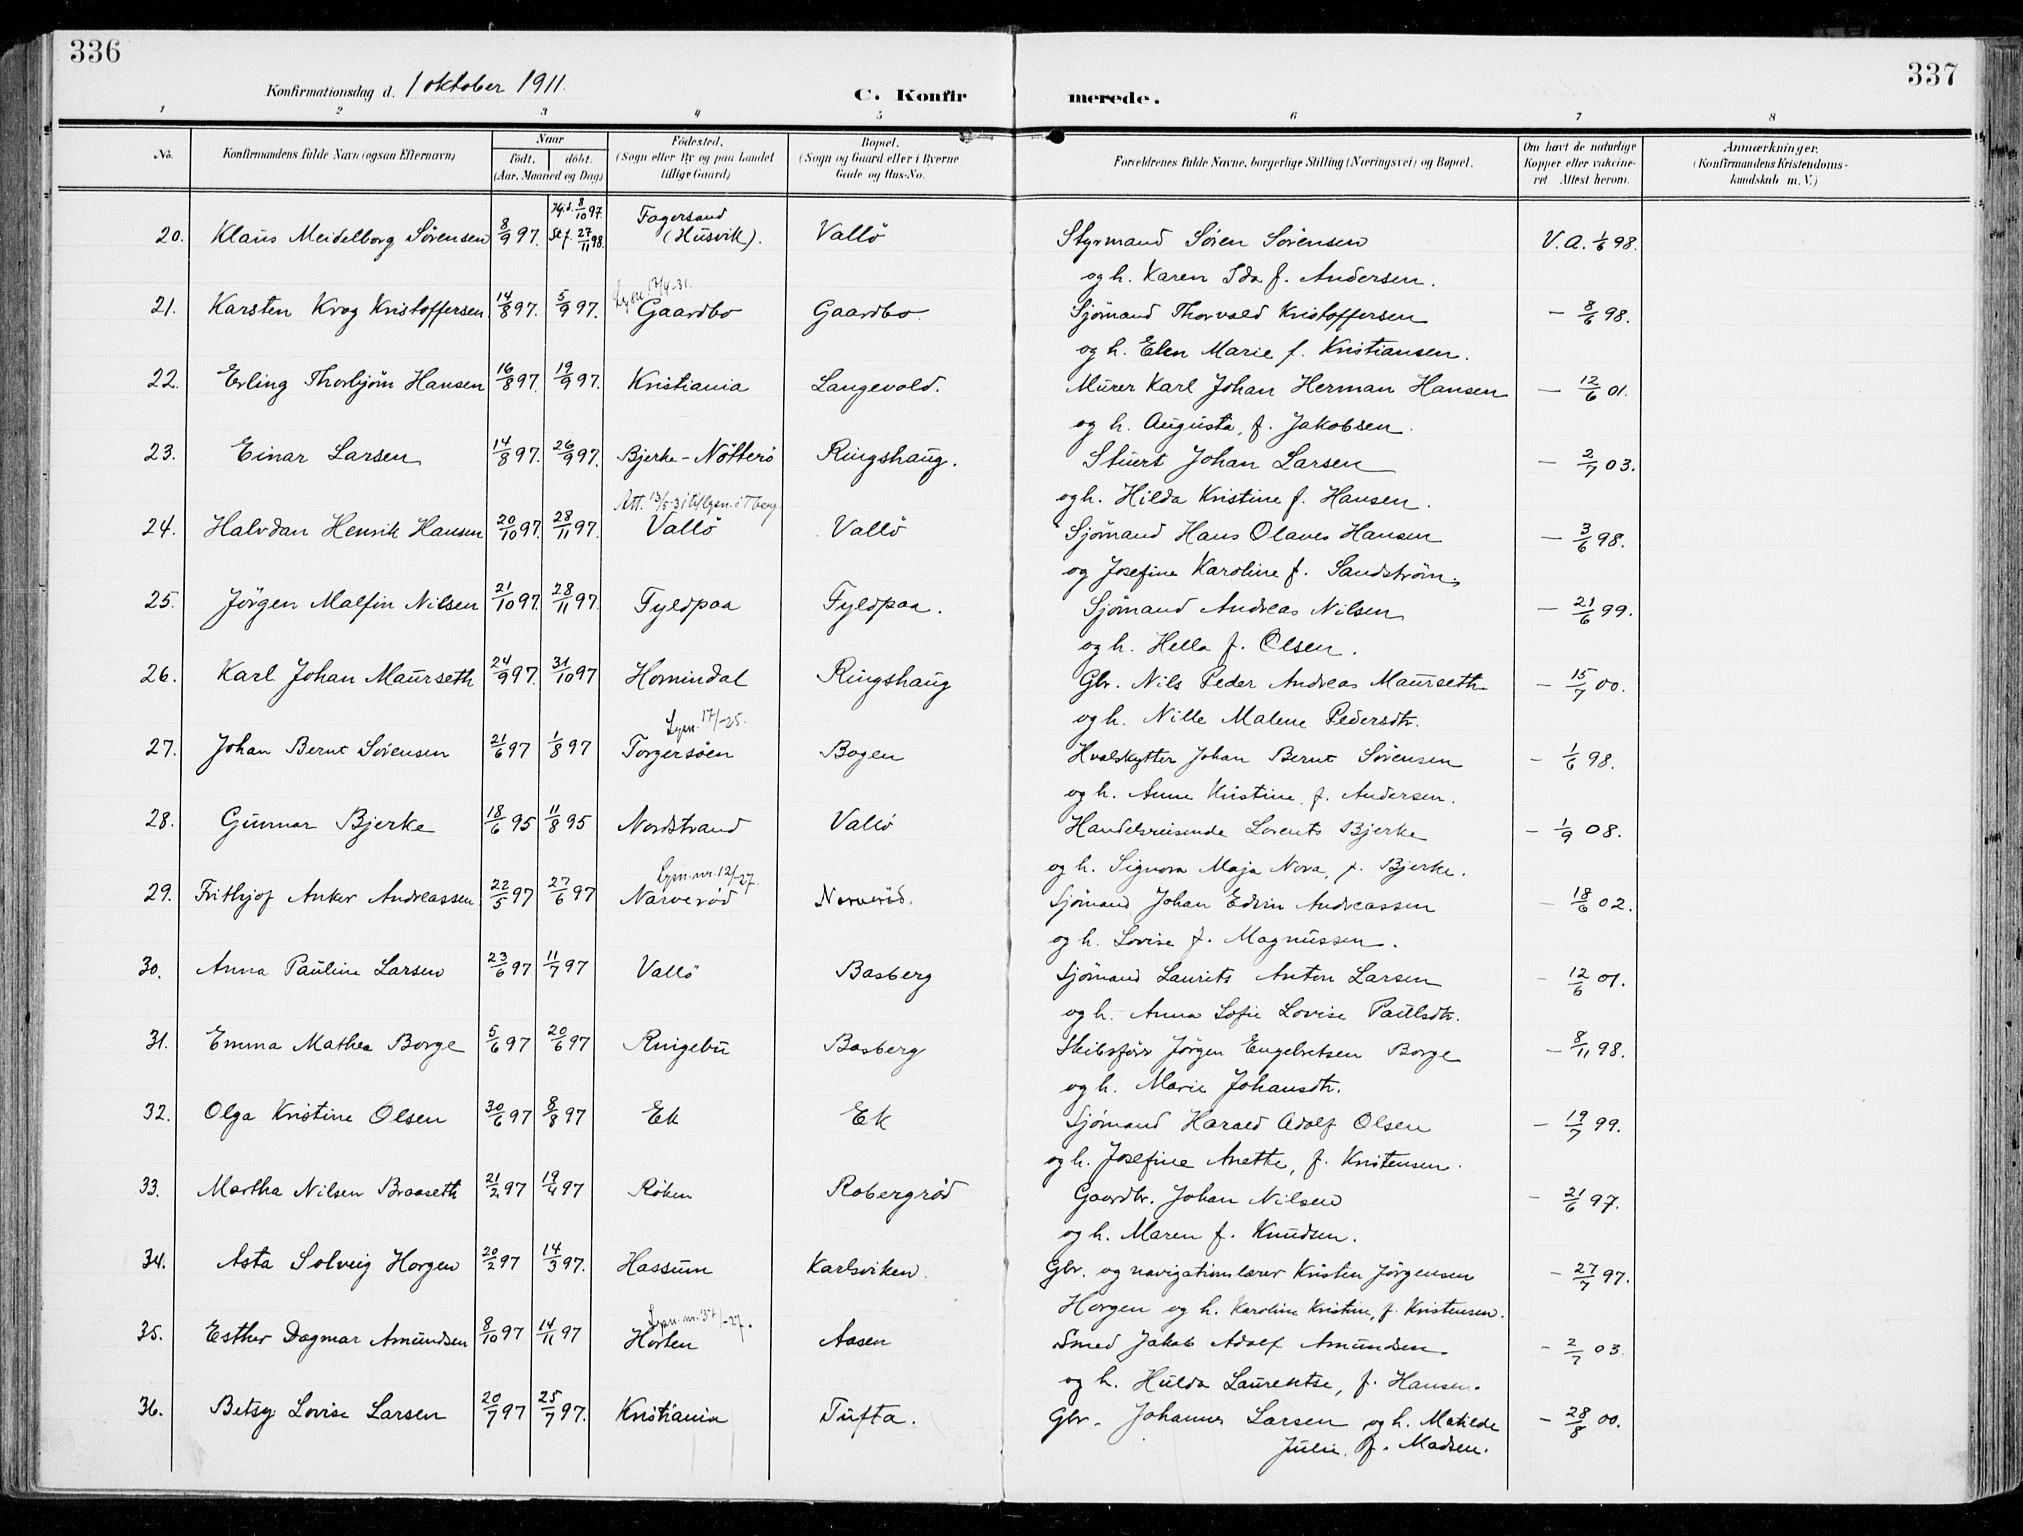 336
337
Konfirmationsdag d. 1 oktober 1911.
C. Konfirmerede.
1 2 3 4 5 6 7 8
No. Konfirmandens fulde Navn (ogsaa Efternavn) Naar født. døbt. (Aar, Maaned og Dag) Fødested. (Sogn eller By og paa Landet tillige Gaard) Bopæl. (Sogn og Gaard eller i Byerne Gade og Hus-No. Forældrenes fulde Navne, borgerlige Stilling (Næringsvei) og Bopæl. Om havt de naturlige Kopper eller vakcineret. Attest herom. Anmærkninger. (Konfirmandens Kristendomskundskab m. V.)
20. Klaus Meidelborg Sörensen 8/9 97. Hj.d. 8/10 97. St.f. 27/11 98. Fagersand (Husvik). Vallö Styrmand Sören Sörensen V.A. 1/6 98.
og h. Karen Ida f. Andersen.
21. Karsten Krog Kristoffersen 14/8 97. 5/9 97. Lysn. 17/4-31. Gaardbo Gaardbo Sjömand Thorvald Kristoffersen – 8/6 98.
og h. Elen Marie f. Kristiansen.
22. Erling Thorbjörn Hansen 16/8 97. 19/9 97. Kristiania Langevold. Murer Karl Johan Herman Hansen – 12/6 01.
og h. Augusta, f. Jakobsen.
23. Einar Larsen 14/8 97. 26/9 97. Bjerke-Nötterö Ringshaug. Stuert Johan Larsen – 2/7 03.
og h. Hilda Kristine f. Hansen.
24. Halvdan Henrik Hansen 20/10 97. 28/11 97. Att. 13/5-31 til lysn. i Tberg Vallö Vallö Sjömand Hans Olaves Hansen – 3/6 98.
og Josefine Karoline f. Sandström.
25. Jörgen Malfin Nilsen 21/10 97. 28/11 97. Fyldpaa Fyldpaa. Sjömand Andreas Nilsen – 21/6 99.
og h. Hella f. Olsen.
26. Karl Johan Maurseth 24/9 97. 31/10 97 Hornindal Ringshaug Gbr. Nils Peder Andreas Maurseth – 15/7 00.
og h. Nille Malene Pedersdtr.
27. Johan Bernt Sörensen 21/6 97 1/8 97 Lysn. 17/-25. Torgersöen Bogen Hvalskytter Johan Bernt Sörensen – 1/6 98.
og h. Anne Kristine f. Andersen.
28. Gunnar Bjerke 18/6 95 11/8 95 Nordstrand Vallö Handelsreisende Lorents Bjerke – 1/9 08.
og h. Signora Maja Nora, f. Bjerke.
29. Frithjof Anker Andreassen 22/5 97 27/6 97 Lysn. nr. 12/-27. Narveröd Narveröd. Sjömand Johan Edvin Andreassen – 18/6 02.
og h. Lovise f. Magnussen.
30. Anna Pauline Larsen 23/6 97 11/7 97 Vallö Basberg Sjömand Laurits Anton Larsen – 12/6 01.
og h. Anna Sofie Lovise Paulsdtr.
31. Emma Mathea Borge 5/6 97 20/6 97 Ringebu Basberg Skibsförer Jörgen Engebretsen Borge – 8/11 98.
og h. Marie Johansdtr.
32. Olga Kristine Olsen 30/6 97 8/8 97 Ek Ek Sjömand Harald Adolf Olsen – 19/7 99.
og h. Josefine Anette, f. Kristensen.
33. Martha Nilsen Braaseth 21/2 97 19/4 97 Röken Robergröd Gaardbr. Johan Nilsen – 21/6 97.
og h. Maren f. Knudsen.
34. Asta Solveig Horgen 20/2 97 14/3 97. Hassum Karlsviken. Gbr. og navigationslærer Kristen Jörgensen – 27/7 97.
Horgen og h. Karoline Kristine, f. Kristensen.
35. Esther Dagmar Amundsen 8/10 97 14/11 97 Lysn. nr. 37/-27. Horten Aasen Smed Jakob Adolf Amundsen – 2/7 03
og h. Hulda Laurentse, f. Hansen.
36. Betsy Lovise Larsen 20/7 97 25/7 97. Kristiania Tufta. Gbr. Johannes Larsen og h. Matilde – 28/8 00.
Julie, f. Madsen.